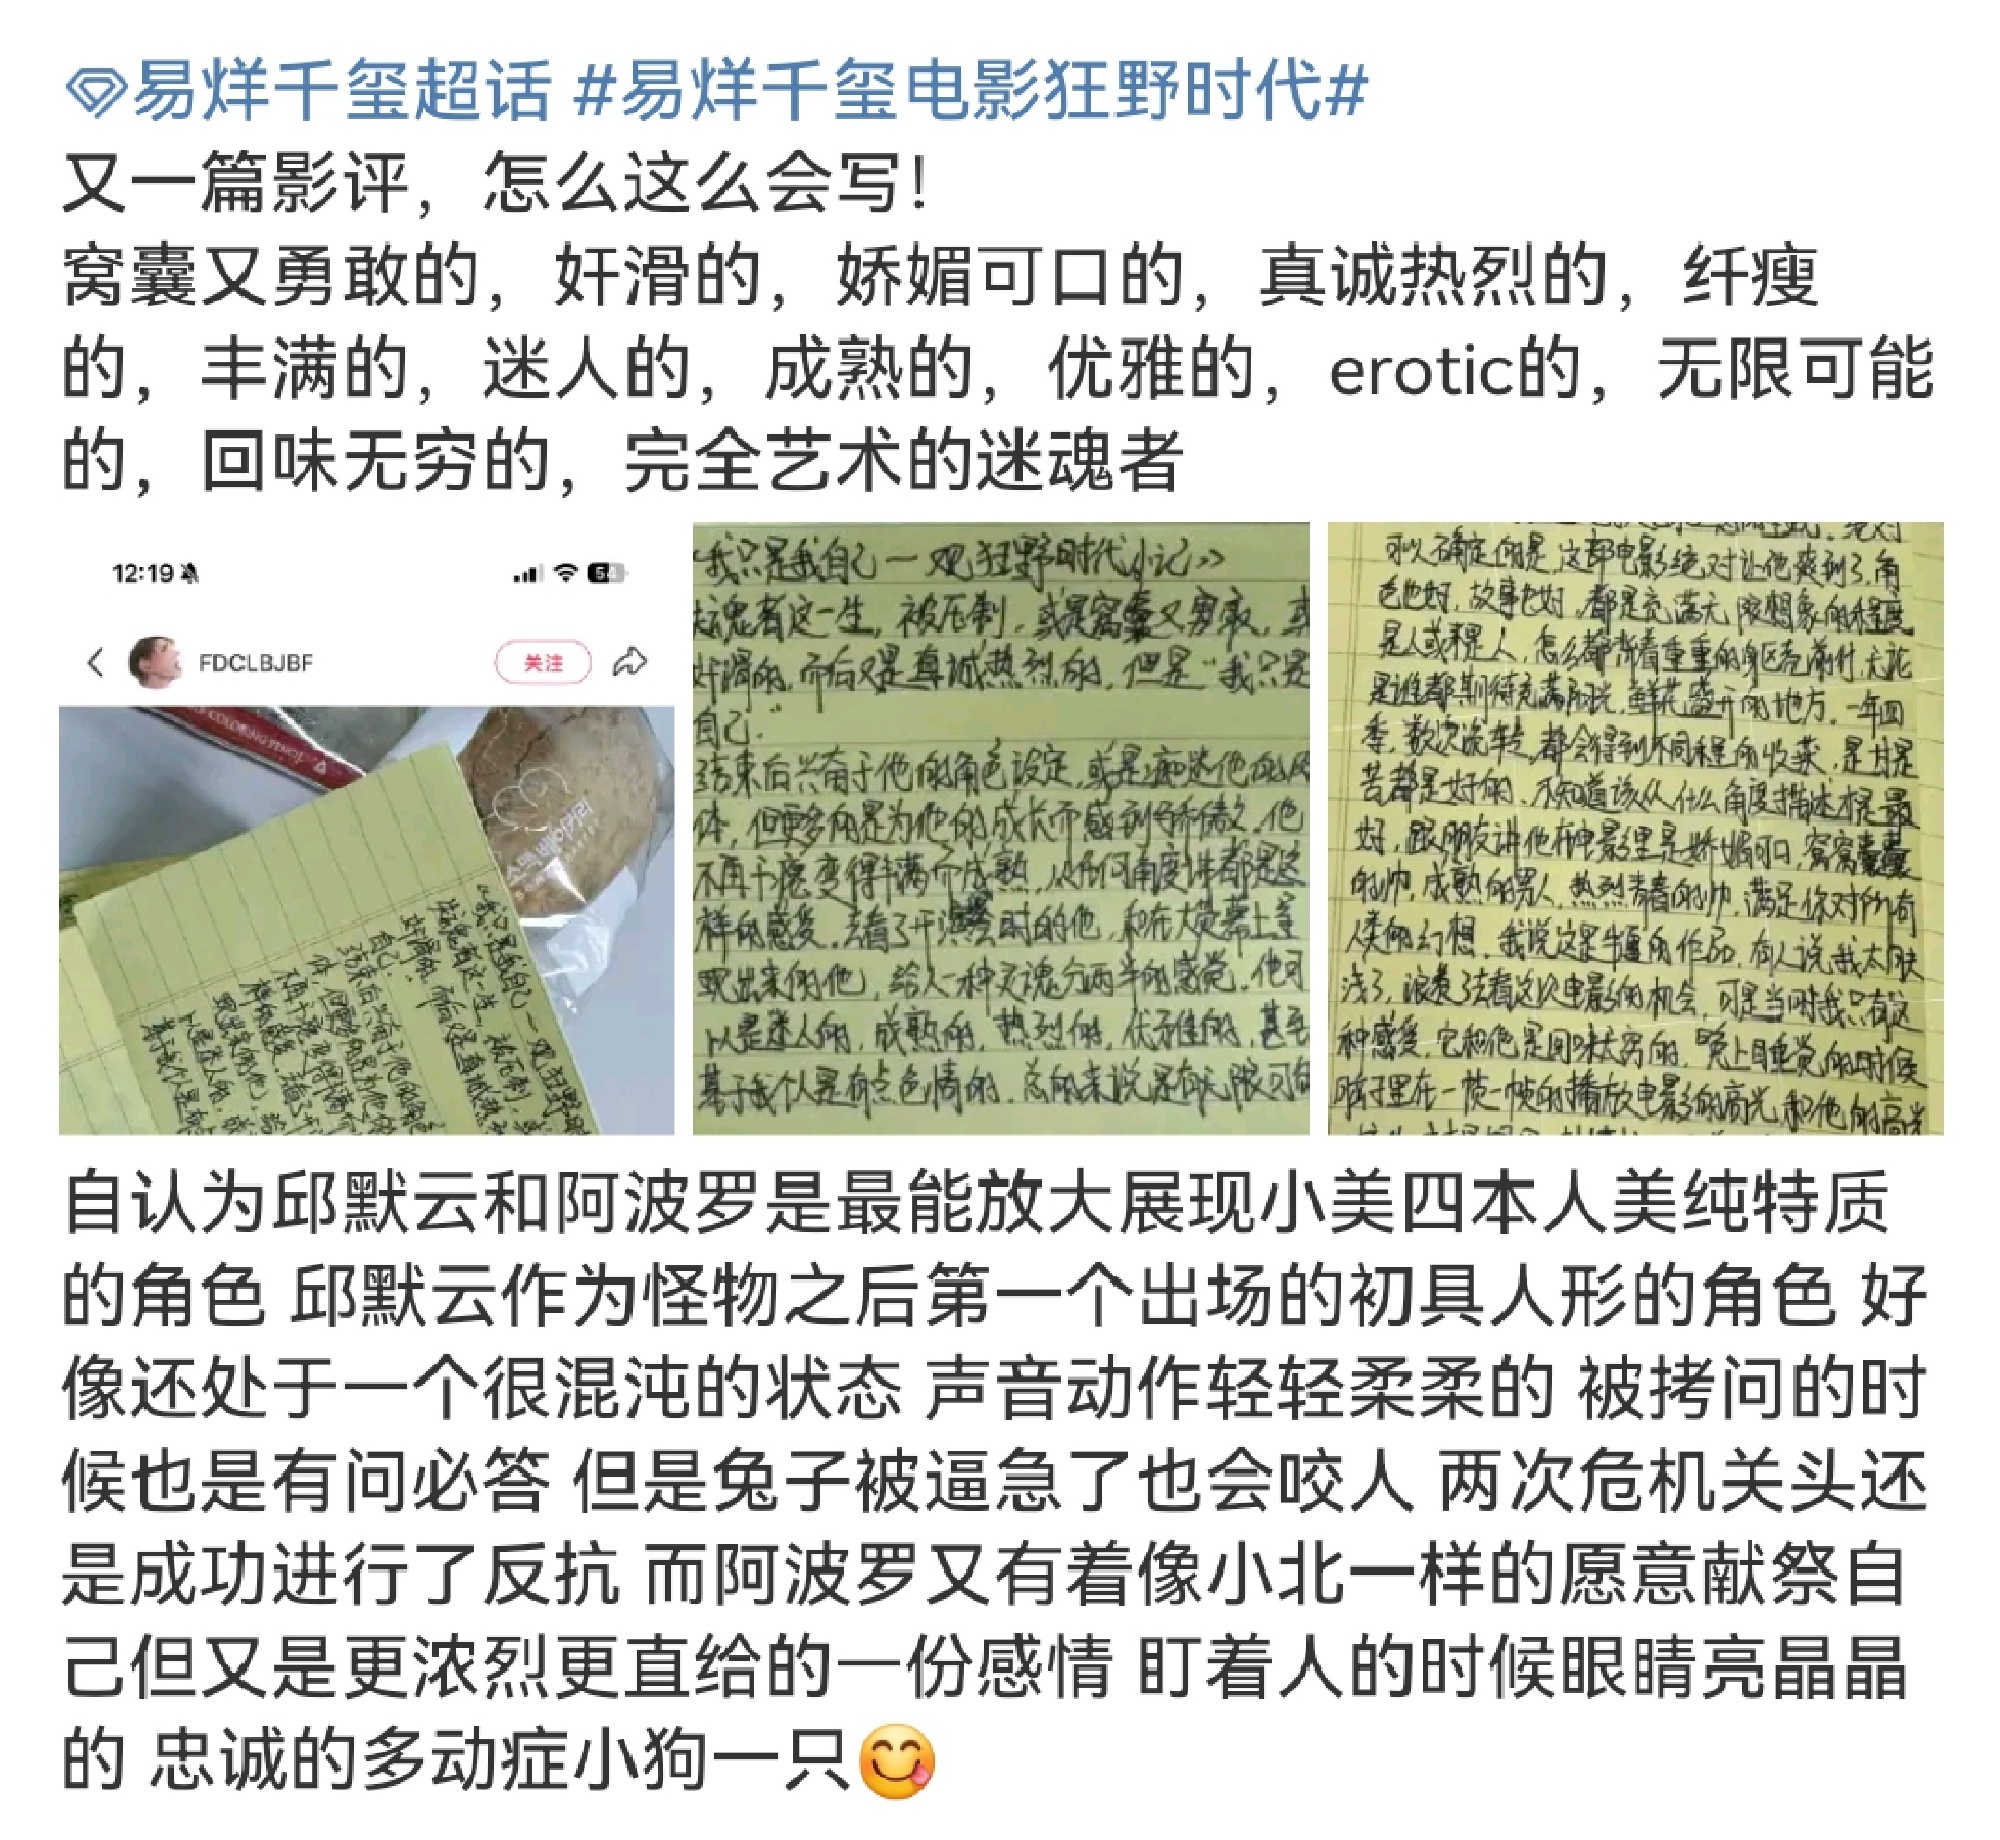 易烊千玺超话 #易烊千玺电影狂野时代#
又一篇影评，怎么这么会写！
窝囊又勇敢的，奸滑的，娇媚可口的，真诚热烈的，纤瘦
的，丰满的，迷人的，成熟的，优雅的，erotic的，无限可能
的，回味无穷的，完全艺术的迷魂者
12:19
54
FDCLBJBF
关注
COLORING PENCIL
我只是我自己一观狂野时代小记》
迷魂者这一生，被压制，或是窝囊又勇敢，或
奸滑的，而后又是真诚热烈的，但是“我只是
自己.”
结束后兴奋于他的角色设定，或是痴迷他的肉
体，但更多的是为他的成长而感到骄傲，他
不再干瘪变得丰满而成熟，从任何角度讲都是这
样的感受，去看了开演会时的他，和在大荧幕上呈
现出来的他，给人一种灵魂分两半的感觉，他可
以是迷人的，成熟的，热烈的，优雅的，甚至
基于我个人是有点色情的，总的来说是有无限可能
可以确定的是，这部电影绝对让他爽到了，角
色也好，故事也好，都是充满无限想象的程度
是人或不是人，怎么都背着重重的身躯前行，无论
是谁都期待充满阳光，鲜花盛开的地方，一年四
季，数次流转，都会得到不同程度的收获，是甘是
苦都是好的，不知道该从什么角度描述才是最
好，跟朋友讲他在电影里是娇媚可口，窝窝囊囊
的帅，成熟的男人，热烈青春的帅，满足你对所有
人类的幻想，我说这是牛逼的作品，有人说我太肤
浅了，浪费了去看这次电影的机会，可是当时我只有这
种感受，它和他是回味无穷的，晚上睡觉的时候
脑子里在一帧一帧的播放电影的高光和他的高光
自认为邱默云和阿波罗是最能放大展现小美四本人美纯特质
的角色 邱默云作为怪物之后第一个出场的初具人形的角色 好
像还处于一个很混沌的状态 声音动作轻轻柔柔的 被拷问的时
候也是有问必答 但是兔子被逼急了也会咬人 两次危机关头还
是成功进行了反抗 而阿波罗又有着像小北一样的愿意献祭自
己但又是更浓烈更直给的一份感情 盯着人的时候眼睛亮晶晶
的 忠诚的多动症小狗一只😋